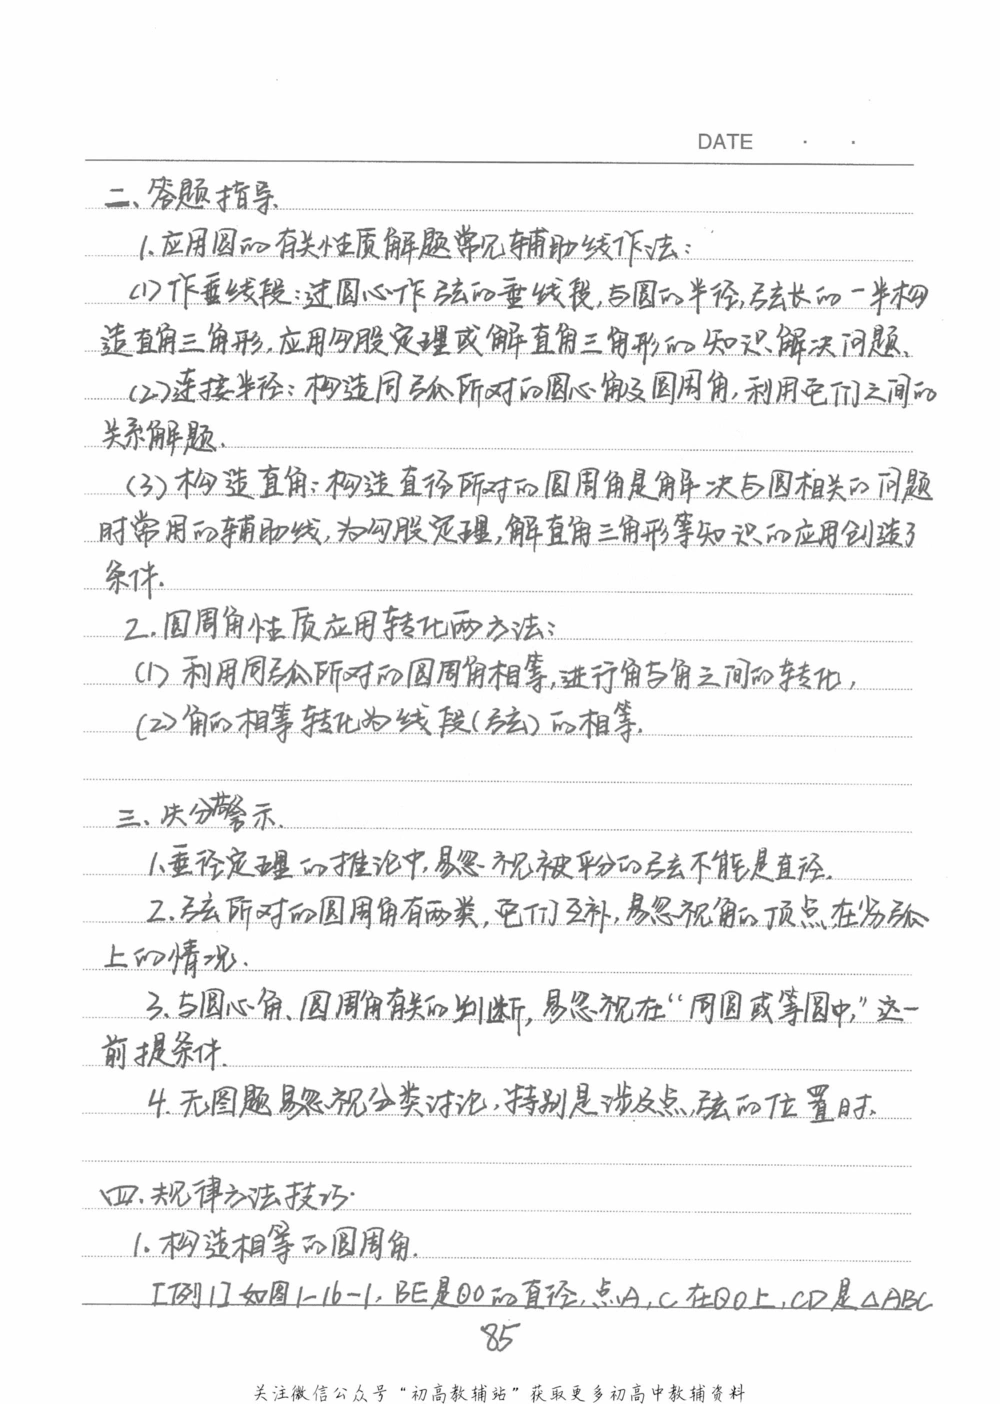 DATE · ·
二、答题指导.
1.应用圆的有关性质解题常见辅助线作法:
(1)作垂线段:过圆心作弦的垂线段,与圆的半径,弦长的一半构
造直角三角形,应用勾股定理或解直角三角形的知识解决问题.
(2)连接半径:构造同弧所对的圆心角及圆周角,利用它们之间的
关系解题.
(3)构造直角:构造直径所对的圆周角是解决与圆相关的问题
时常用的辅助线,为勾股定理,解直角三角形等知识的应用创造了
条件.
2.圆周角性质应用转化两方法:
(1)利用同弧所对的圆周角相等,进行角与角之间的转化,
(2)角的相等转化为线段(弦)的相等.
三、失分警示.
1.垂径定理的推论中,易忽视被平分的弦不能是直径.
2.弦所对的圆周角有两类,它们互补,易忽视角的顶点在劣弧
上的情况.
3.与圆心角、圆周角有关的判断,易忽视在“同圆或等圆中,”这一
前提条件.
4.无图题易忽视分类讨论,特别是涉及点,弦的位置时.
四、规律方法技巧.
1.构造相等的圆周角.
[例1]如图1-16-1,BE是⊙O的直径,点A,C在⊙O上,CD是△ABC
85
关注微信公众号“初高教辅站”获取更多初高中教辅资料